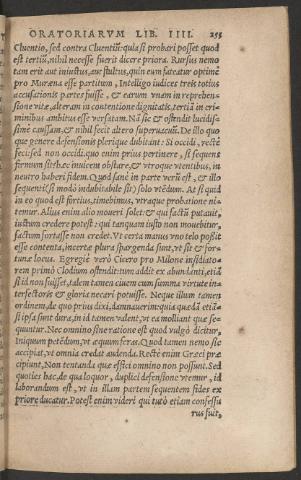 ORATORIARVM LIB. IIII. 255
Cluentio, sed contra Cluentiũ: quia si probari posset quod
est tertiũ, nihil necesse fuerit dicere priora. Rursus nemo
tam erit aut iniustus, aut stultus, quin eum fateatur optimè
pro Muræna esse partitum, Intelligo iudices treis totius
accusationis partes fuisse, & earum vnam in reprehen-
sione vitæ, alteram in contentione dignitatis, tertiã in cri-
minibus ambitus esse versatam. Nã sic & ostendit lucidis-
simè caussam, & nihil fecit altero superuacuũ. De illo quo
que genere defensionis plerique dubitant: Si occidi, rectè
feci: sed non occidi. quo enim prius pertinere, si sequens
firmum sit: hæc inuicem obstare, & vtroque vtentibus, in
neutro haberi fidem. Quod sanè in parte verũ est, & illo
sequenti (si modò indubitabile sit) solo vtẽdum. At si quid
in eo quod est fortius, timebimus, vtraque probatione ni-
temur. Alius enim alio moueri solet: & qui factũ putauit,
iustum credere potest: qui tanquam iusto non mouebitur,
factum fortasse non credet. Vt certa manus vno telo possit
esse contenta, incerta plura spargenda sunt, vt sit & for-
tunæ locus. Egregiè verò Cicero pro Milone insidiato-
rem primò Clodium ostendit: tum addit ex abundanti, etiã
si id non fuisset, talem tamen ciuem cum summa virtute in-
terfectoris & gloria necari potuisse. Neque illum tamen
ordinem, de quo prius dixi, damnauerim: quia quædã etiã
si ipsa sunt dura, in id tamen valent, vt ea molliant quæ se-
quuntur. Nec omnino sine ratione est quod vulgò dicitur,
Iniquum petẽdum, vt æquum feras. Quod tamen nemo sic
accipiat, vt omnia credat audenda. Rectè enim Græci præ
cipiunt, Non tentanda quæ effici omnino non possunt. Sed
quoties hac, de qua loquor, duplici defensione vtemur, id
laborandum est, vt in illam partem sequentem fides ex
priore ducatur. Potest enim videri qui tutò etiam confessu
rus fuit,